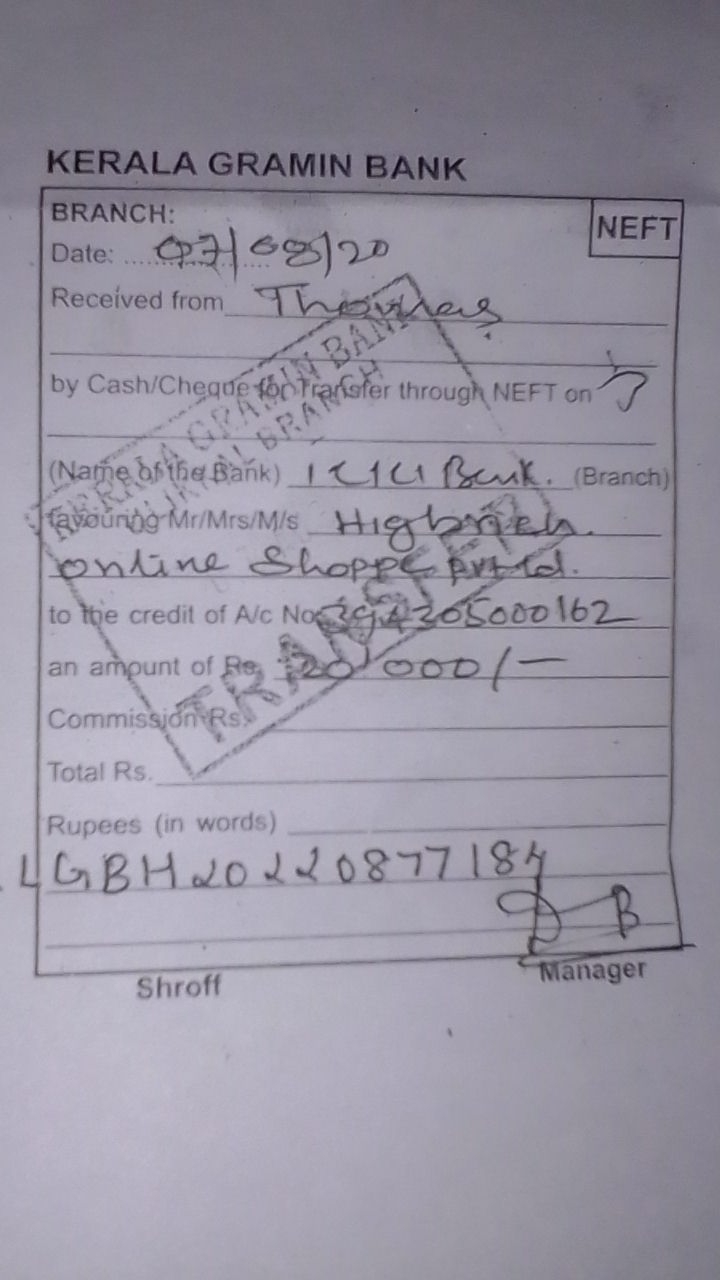 KERALA GRAMIN BANK
NEFT
BRANCH:
Date: 07/08/20
Received from Thomas
by Cash/Cheque for Transfer through NEFT on
(Name of the Bank) ICICI Bank. (Branch)
favouring Mr/Mrs/M/s
Online Shoppe Pvt Ltd.
to the credit of A/c No. 
an amount of Rs. 20,000/-
Commission Rs.
Total Rs.
Rupees (in words)
GBH20220877184
Shroff
Manager
KERALA GRAMIN BANK
BRANCH
TRANSFER